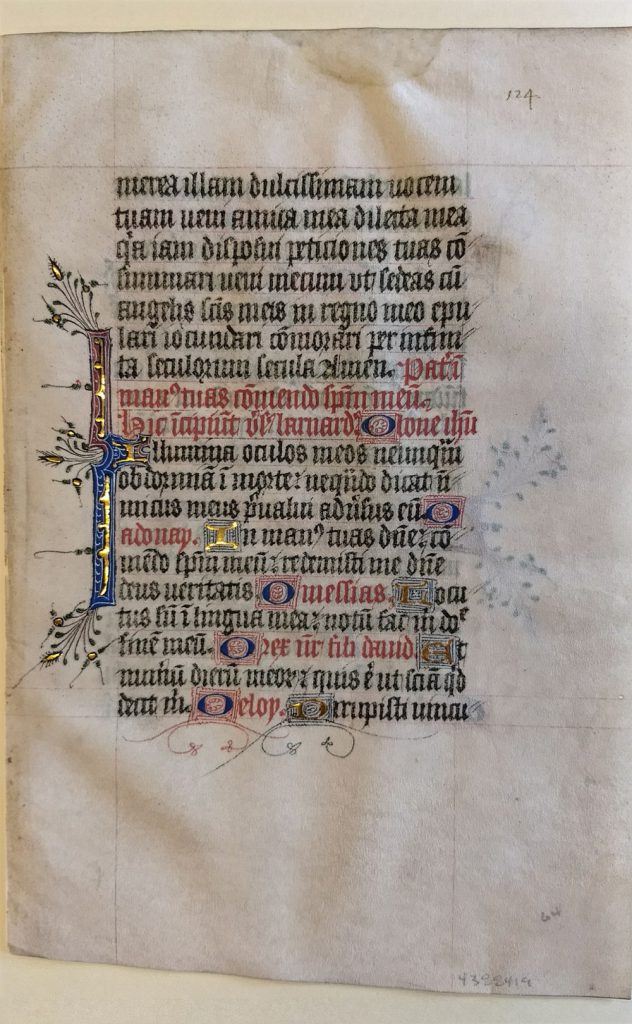 124
merea illam dulcissimam uocem
tuam ueni amica mea dilecta mea
q̄a iam disposui peticiones tuas cō
summari ueni mecum vt sedeas cū
angelis scīs meis in regno meo epu
lari iocundari cōmorari per infini
ta seculorum secula Amen. Pat' ī
man⁹ tuas cōmendo spm̄ meū.
Hic īcipiūt v̄s̄ barnardi O bone ihū
Illumina oculos meos ne unqūā
obdormiā ī morte ne qn̄do dicat īi
micus meus p̄ualui adūsus eū O
adonay. In man⁹ tuas dn̄e cō
mēdo spm̄ meū redemisti me dn̄e
deus ueritatis. O messias. Locu
tus sū ī lingua mea notū fac m̄ do
finē meū. O rex nr̄ fili dauid. Et
numū dierū meoꝝ quis ē ut sciā qd
desit m̄. O eloy. Dirupisti uincu
64
4322419